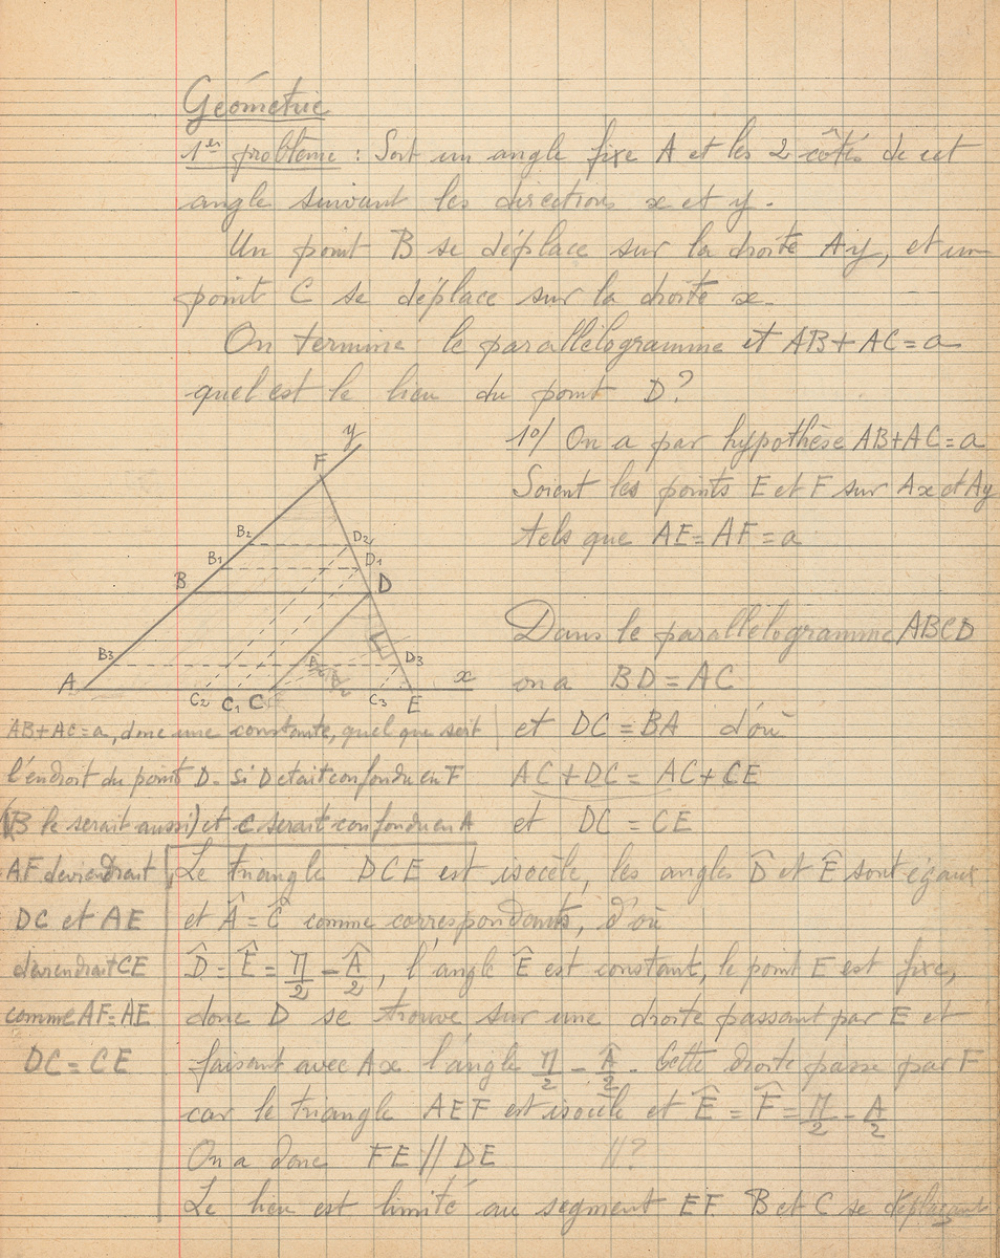 Géométrie
1er problème : Soit un angle fixe A et les 2 côtés de cet
angle suivant les directions x et y.
Un point B se déplace sur la droite Ay, et un
point C se déplace sur la droite x.
On termine le parallélogramme et AB+AC=a
quel est le lieu du point D?
y
F
B2
D2
B1
D1
B
D
B3
D3
A
x
C2 C1 C
C3
E
1°/ On a par hypothèse AB+AC=a
Soient les points E et F sur Ax et Ay
tels que AE=AF=a
Dans le parallélogramme ABCD
on a BD=AC
et DC=BA d'où
AC+DC=AC+CE
et DC=CE
AB+AC=a, donc une constante, quel que soit
l'endroit du point D. Si D était confondu en F
(B le serait aussi) et C serait confondu en A
AF deviendrait
DC et AE
deviendrait CE
comme AF=AE
DC=CE
Le triangle DCE est isocèle, les angles D̂ et Ê sont égaux
et Â=Ĉ comme correspondants, d'où
D̂=Ê=Π/2-Â/2, l'angle Ê est constant, le point E est fixe,
donc D se trouve sur une droite passant par E et
faisant avec Ax l'angle Π/2-Â/2. Cette droite passe par F
car le triangle AEF est isocèle et Ê=F̂=Π/2-A/2
On a donc FE//DE //?
Le lieu est limité au segment EF. B et C se déplaçant